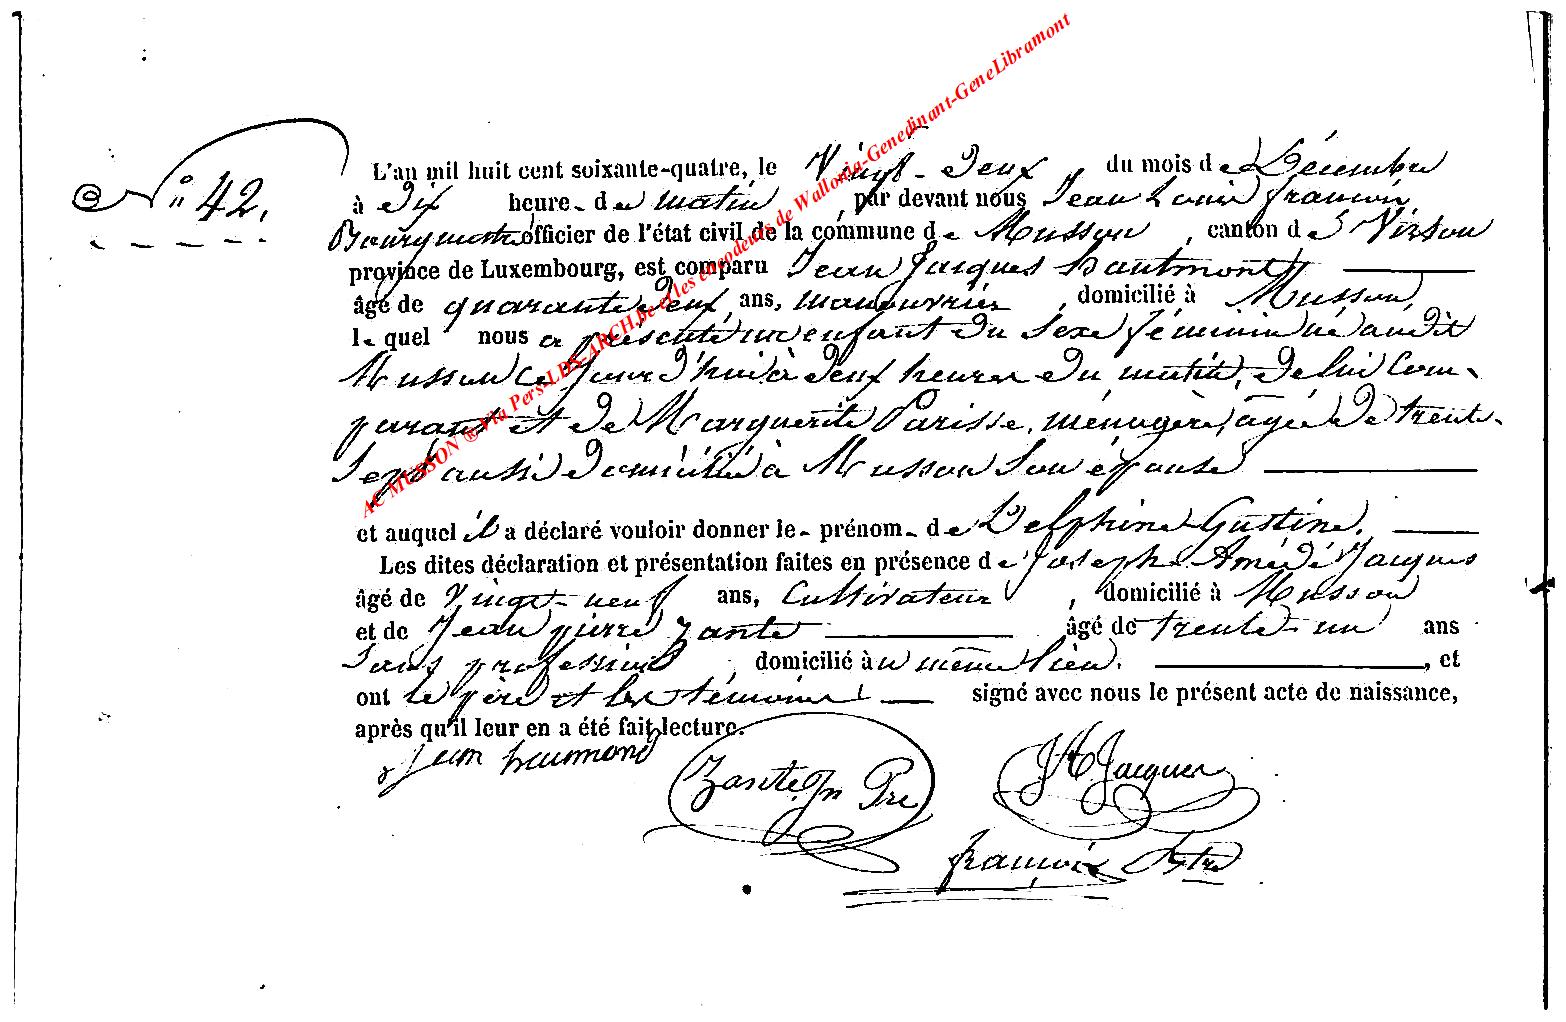 N° 42.
L'an mil huit cent soixante-quatre, le Vingt-Deux du mois de Décembre
à Dix heure- de matin par devant nous Jean Louis françois,
Bourgmestre officier de l'état civil de la commune de Musson, canton de Virton
province de Luxembourg, est comparu Jean Jacques Hautmont
âgé de quarante Deux ans, manouvrier, domicilié à Musson,
le quel nous a présenté un enfant du sexe féminin né audit
Musson ce jour d'hui à deux heures du matin, de lui Com-
parant et de Marguerite Parisse, ménagère, agée de trente-
Sept aussi domicilié à Musson Son épouse
et auquel il a déclaré vouloir donner le- prénom- de Delphine Gustine.
Les dites déclaration et présentation faites en présence de Joseph Amédé Jacques
âgé de Vingt-neuf ans, Cultivateur, domicilié à Musson
et de Jean pierre Zante âgé de trente-un ans
Sans profession, domicilié au même lieu., et
ont le père et les témoins signé avec nous le présent acte de naissance,
après qu'il leur en a été fait lecture.
Jean haumond
Zante Jn Pre
Jh Jacques
françois Bstre
AC MUSSON ® Via Pers-LDS-ARCH.be et les encodeurs de Wallonia-Genedinant-GeneLibramont